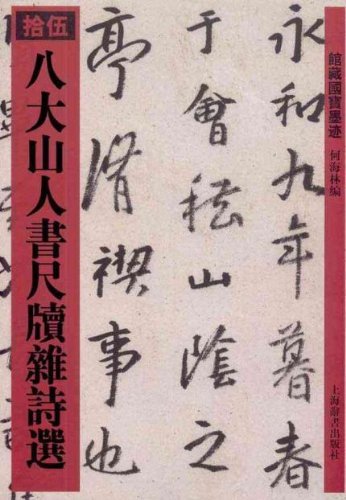 拾伍
八大山人書尺牘雜詩選
館藏國寶墨迹
何海林編
上海辭書出版社
永和九年暮春
于會稽山陰之
亭脩禊事也